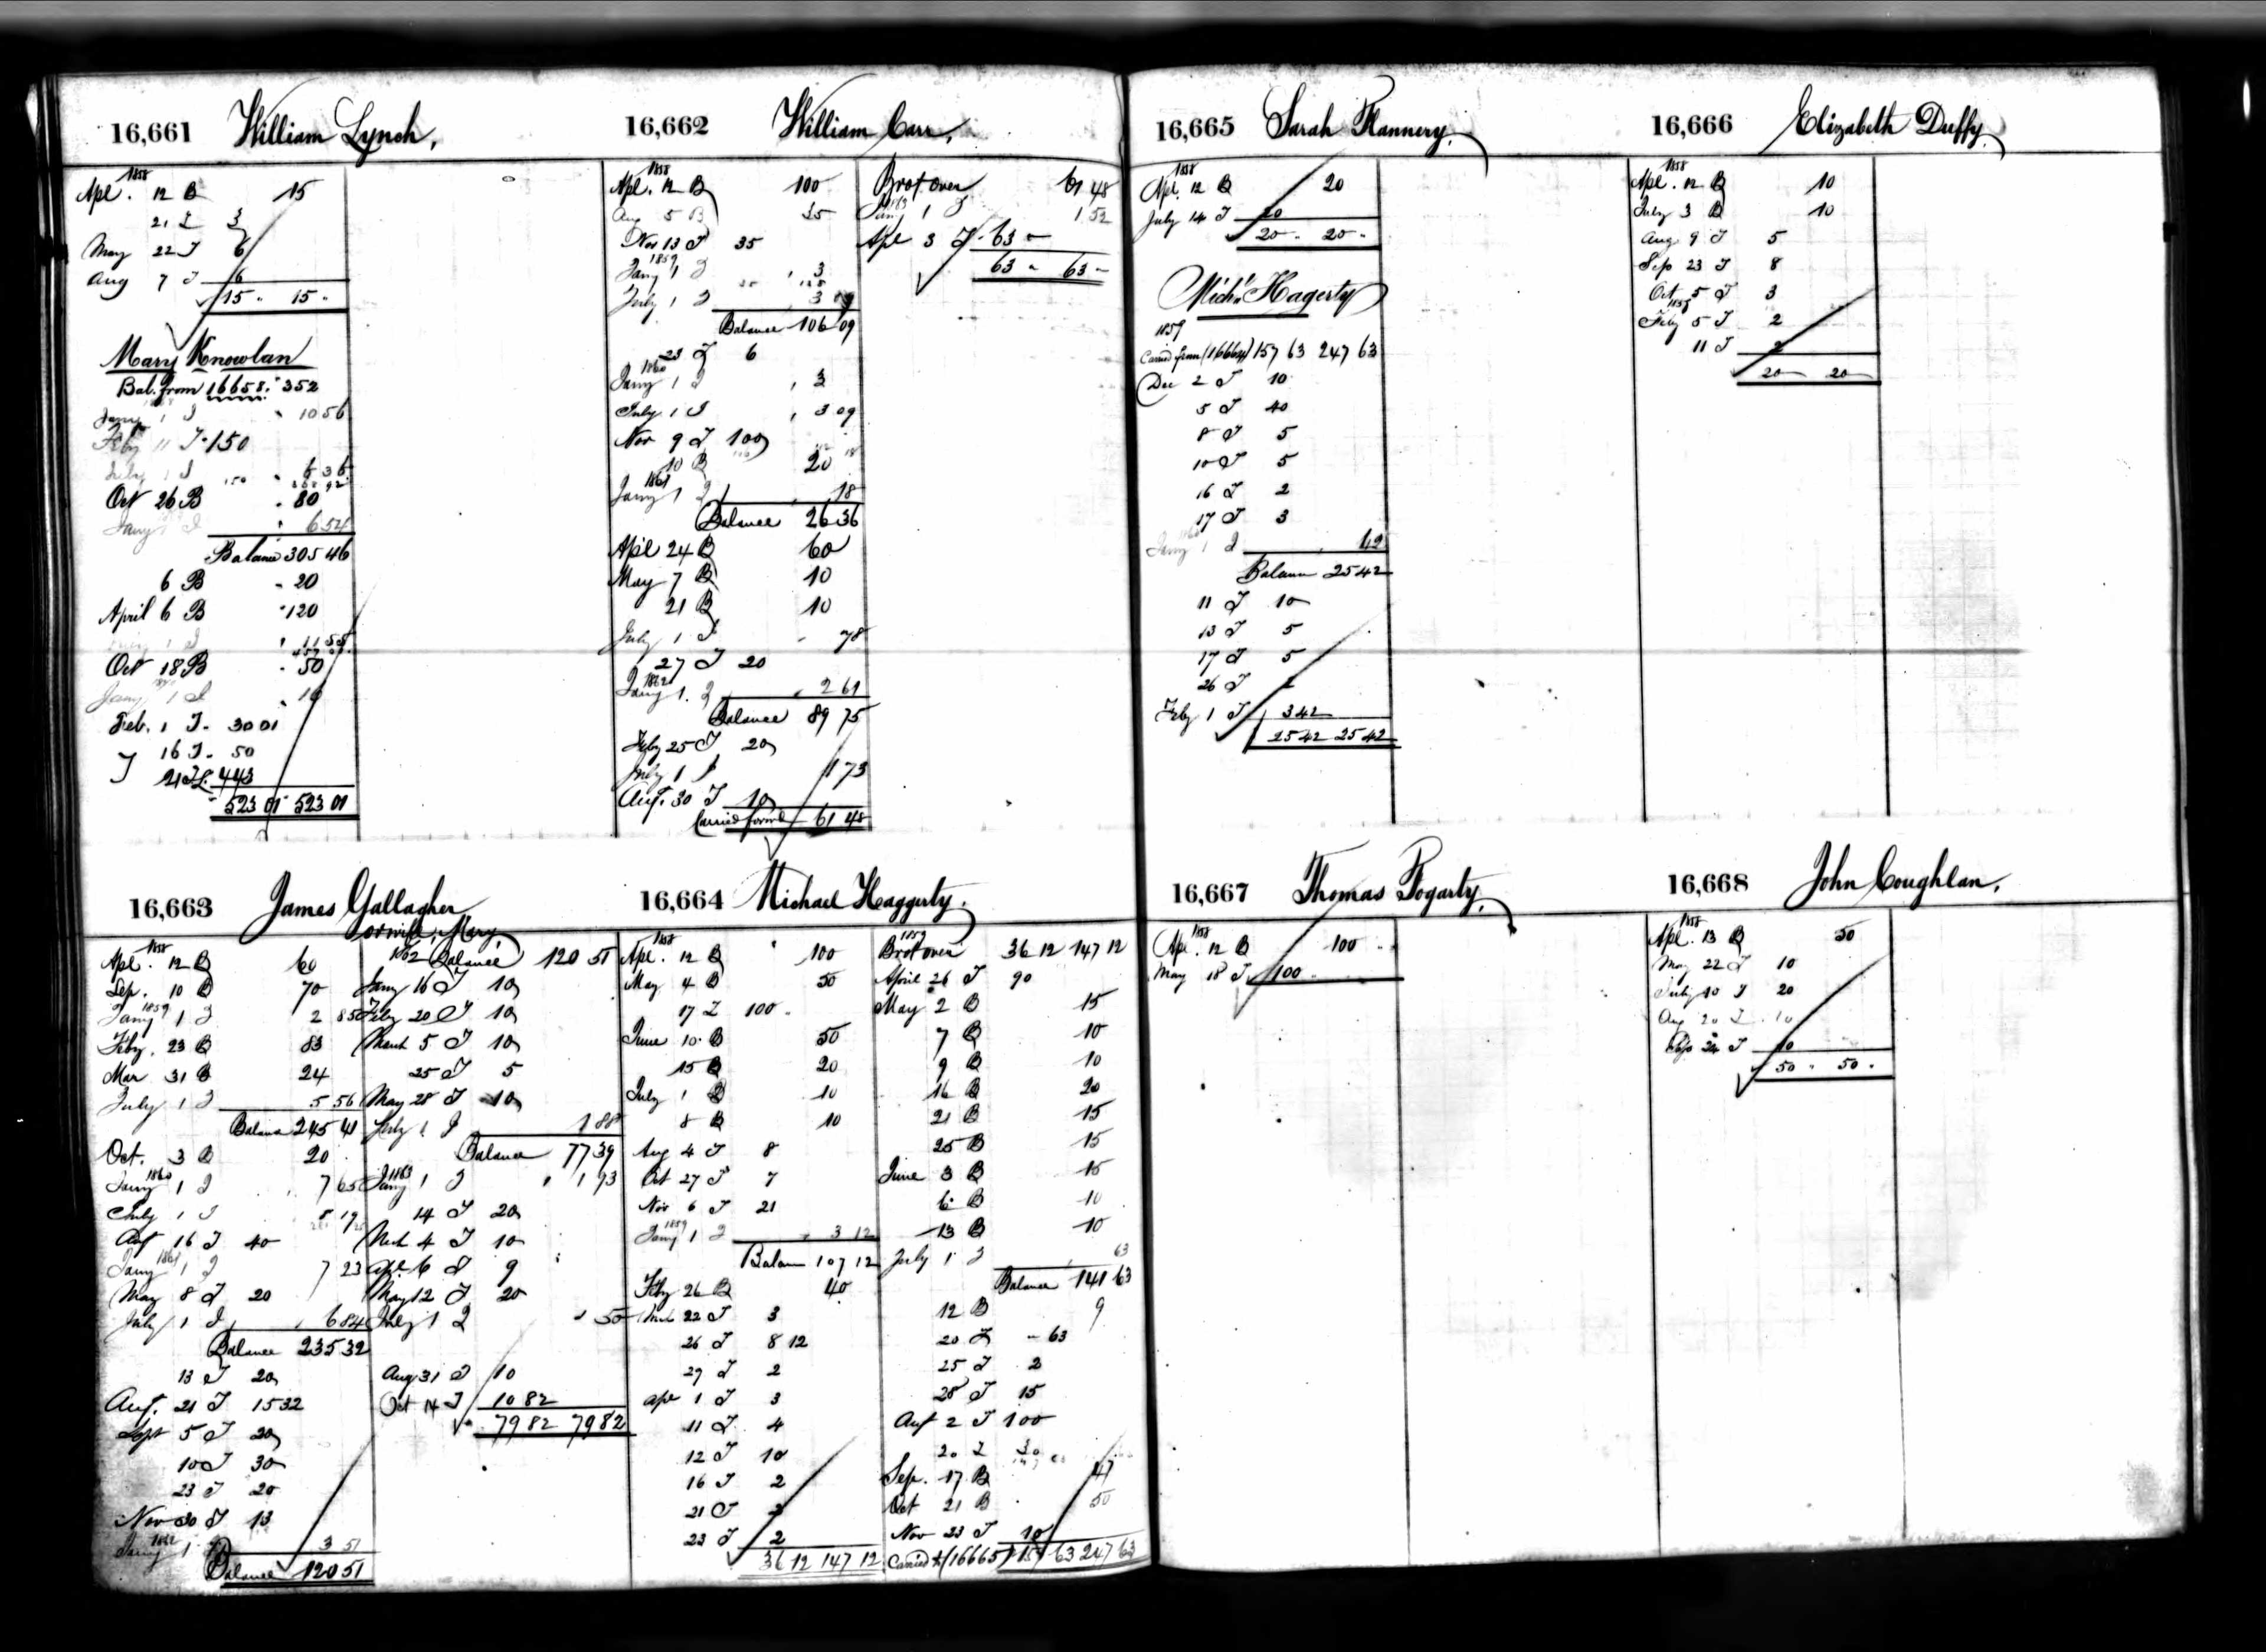 16,661 William Lynch.
1858
Apl. 12 B 15
21 T 3
May 22 T 6
Aug 7 T 6
15 " 15 "
Mary Knowlan
Bal. from 16658. 352
Jany 1 I 10 56
Feby 11 T 150
July 1 I 6 36
Oct 26 B 80
Jany 1 I 6 54
Balance 305 46
6 B 20
April 6 B 120
1 I 11 55
Oct 18 B 50
Jany 1 I 16
Feb. 1 T 30 01
16 T 50
21 T 443
523 01 523 01
16,662 William Carr.
1858
Apl. 12 B 100
Aug 5 B 35
Nov 13 T 35
1859
Jany 1 I 3
July 1 I 3 09
Balance 106 09
23 T 6
1860
Jany 1 I 3
July 1 I 3 09
Nov 9 T 100
10 B 20
1861
Jany 1 I 18
Balance 26 36
Apl 24 B 60
May 7 B 10
21 B 10
July 1 I 78
27 T 20
1862
Jany 1 I 2 61
Balance 89 75
Feby 25 T 20
July 1 I 1 73
Aug. 30 T 10
Carried forwd 61 48
Brot over 61 48
1863
Jany 1 I 1 52
Apl 3 T 63 "
63 " 63 "
16,663 James Gallagher
or wife, Mary
1858
Apl. 12 B 60
Sep. 10 B 70
1859
Jany 1 I 2 85
Feby. 23 B 83
Mar 31 B 24
July 1 I 5 56
Balance 245 41
Oct. 3 B 20
1860
Jany 1 I 7 65
July 1 I 8 19
Aug 16 T 40
1861
Jany 1 I 7 23
May 8 T 20
July 1 I 6 84
Balance 235 32
13 T 20
Aug. 21 T 15 32
Sept 5 T 20
10 T 30
23 T 20
Nov 30 T 13
1862
Jany 1 I 3 51
Balance 120 51
1862 Balance 120 51
Jany 16 T 10
Feby 20 T 10
March 5 T 10
25 T 5
May 28 T 10
July 1 I 1 88
Balance 77 39
1863
Jany 1 I 1 93
14 T 20
Mch 4 T 10
Apl. 6 T 9
May 12 T 20
July 1 I 50
Aug 31 T 10
Oct 14 T 10 82
79 82 79 82
16,664 Michael Haggerty.
1858
Apl. 12 B 100
May 4 B 50
17 T 100
June 10 B 50
15 B 20
July 1 B 10
8 B 10
Aug 4 T 8
Oct 27 T 7
Nov 6 T 21
1859
Jany 1 I 3 12
Balance 107 12
Feby 26 B 40
Mch 22 T 3
26 T 8 12
29 T 2
Apl 1 T 3
11 T 4
12 T 10
16 T 2
21 T 2
23 T 2
36 12 147 12
1859
Brot over 36 12 147 12
April 26 T 90
May 2 B 15
7 B 10
9 B 10
16 B 20
21 B 15
25 B 15
June 3 B 15
6 B 10
13 B 10
July 1 I 63
Balance 141 63
12 B 9
20 T 63
25 T 2
28 T 15
Aug 2 T 100
20 T 30
Sep. 17 B 47
Oct 21 B 50
Nov 23 T 10
Carried to (16665) 157 63 247 63
16,665 Sarah Flannery.
1858
Apl. 12 B 20
July 14 T 20
20 " 20 "
Michl Hagerty
1859
Carried from (16664) 157 63 247 63
Dec 2 T 10
5 T 40
8 T 5
10 T 5
16 T 2
17 T 3
1860
Jany 1 I 42
Balance 25 42
11 T 10
13 T 5
17 T 5
26 T 2
Feby 1 T 3 42
25 42 25 42
16,666 Elizabeth Duffy.
1858
Apl. 12 B 10
July 3 B 10
Aug 9 T 5
Sep 23 T 8
Oct 5 T 3
1859
Feby 5 T 2
11 T 2
20 20
16,667 Thomas Fogarty.
1858
Apl. 12 B 100
May 18 T 100
16,668 John Coughlan.
1858
Apl. 13 B 50
May 22 T 10
July 10 T 20
Aug 20 T 10
Sep 24 T 10
50 " 50 "